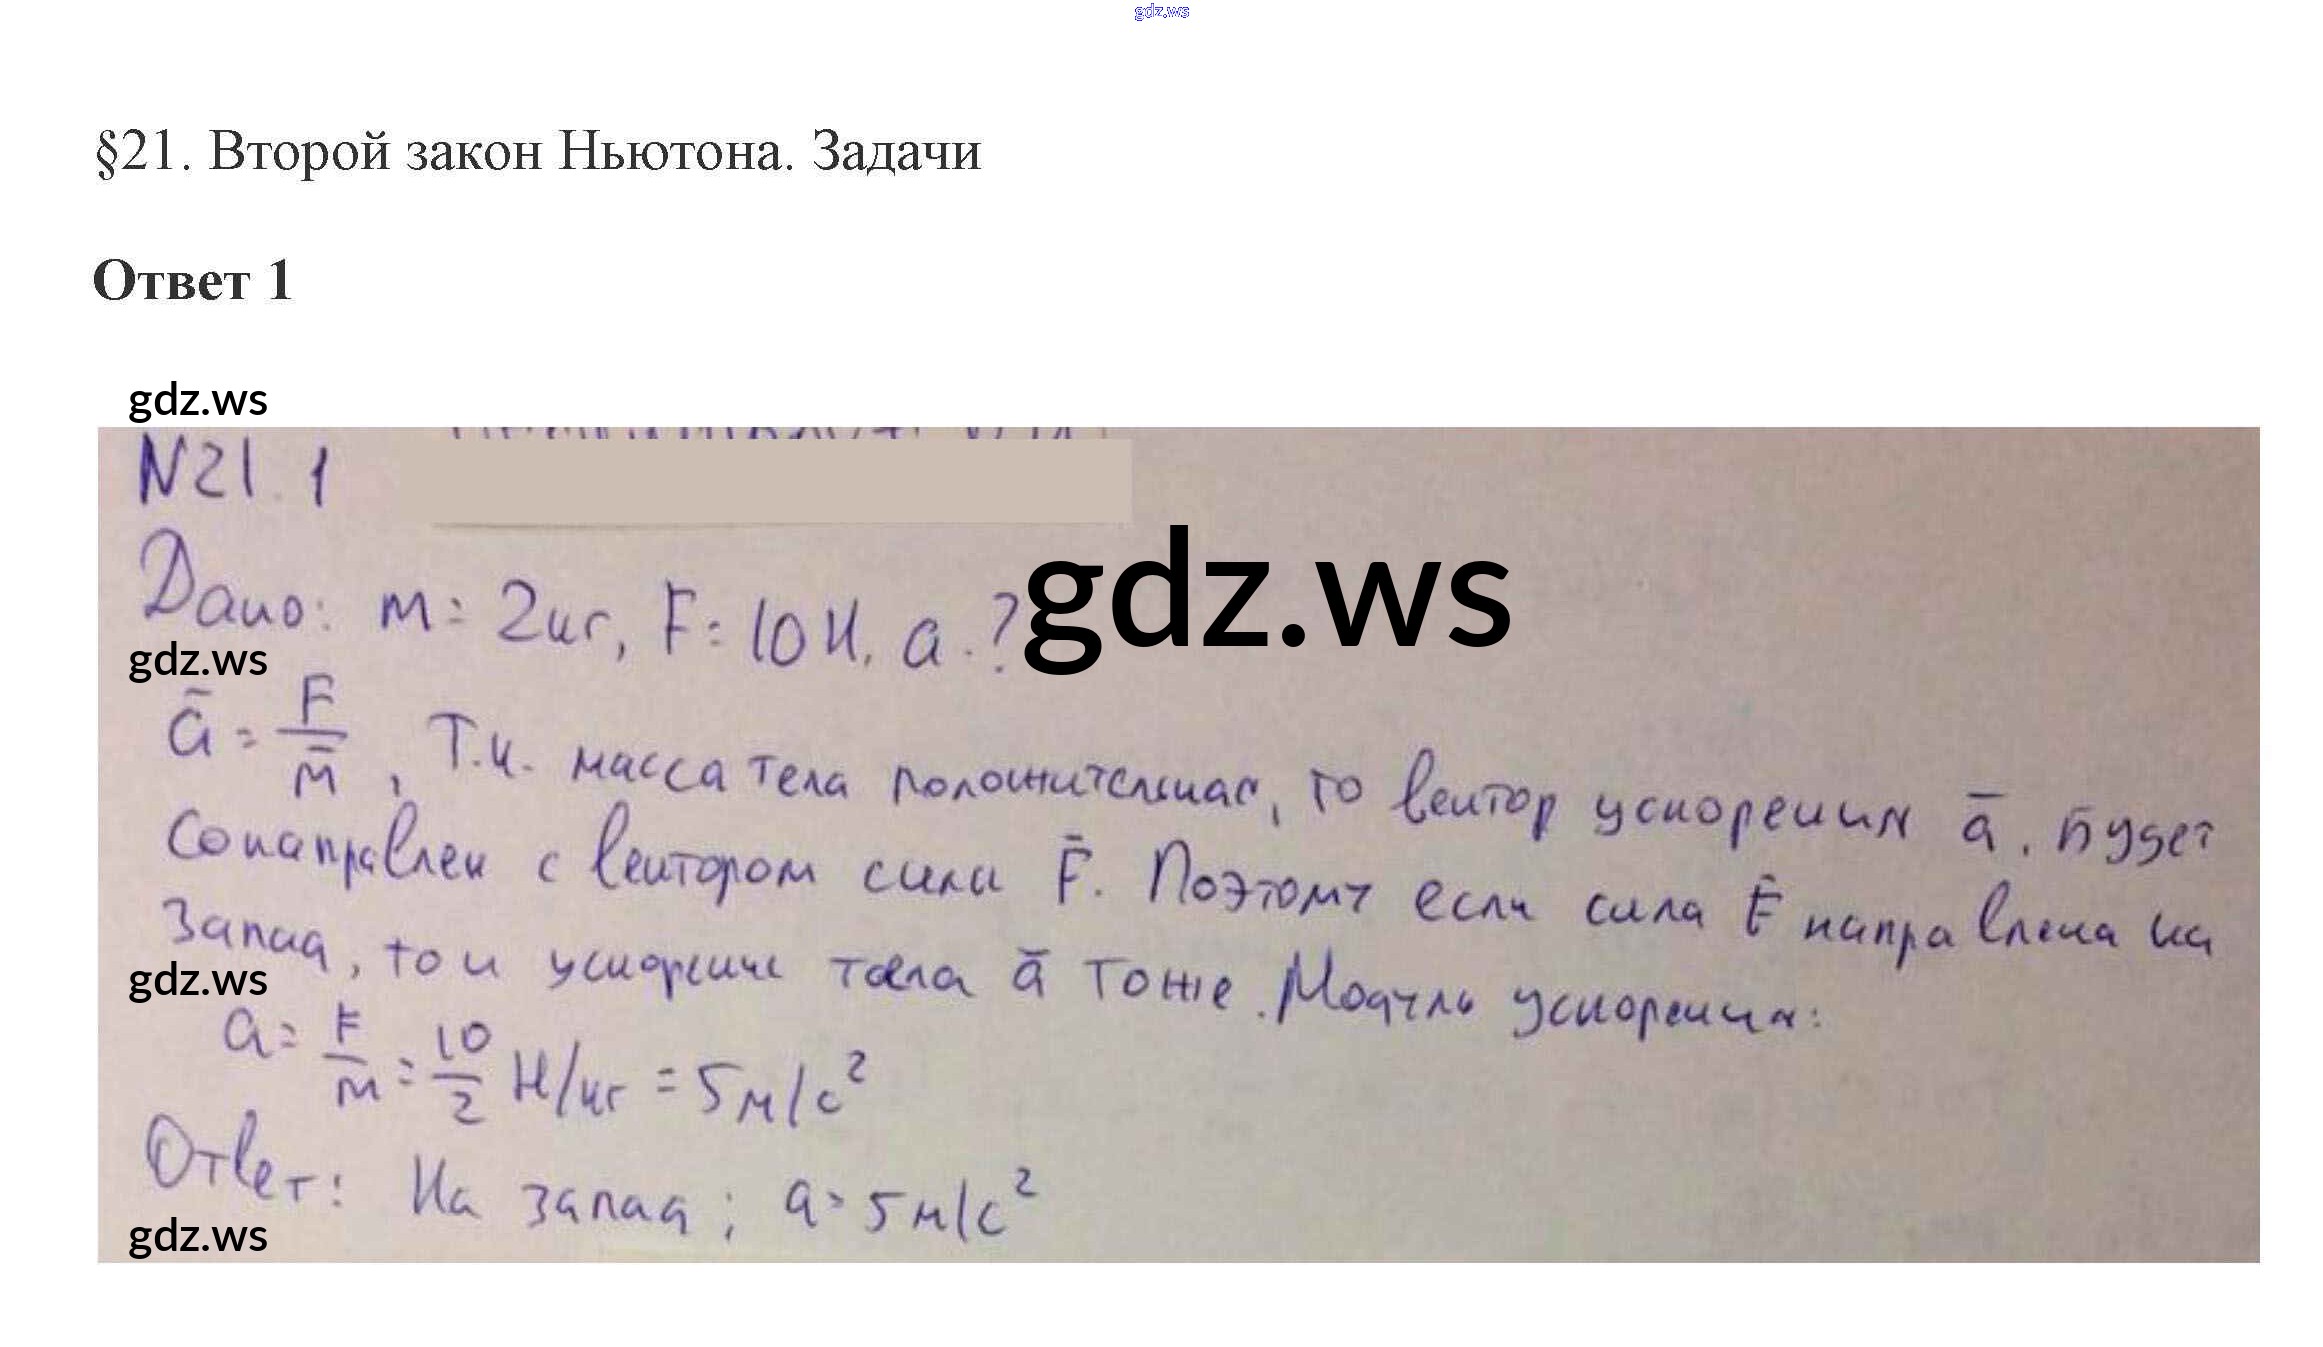 gdz.ws
§21. Второй закон Ньютона. Задачи
Ответ 1
gdz.ws
N21.1
Дано: m = 2кг, F = 10Н. a - ?
gdz.ws
gdz.ws
ā = F/m̄, Т.к. масса тела положительная, то вектор ускорения ā, будет
сонаправлен с вектором силы F̄. Поэтому если сила F̄ направлена на
запад, то и ускорение тела ā тоже. Модуль ускорения:
gdz.ws
a = F/m = 10/2 Н/кг = 5м/с²
Ответ: На запад; a = 5м/с²
gdz.ws